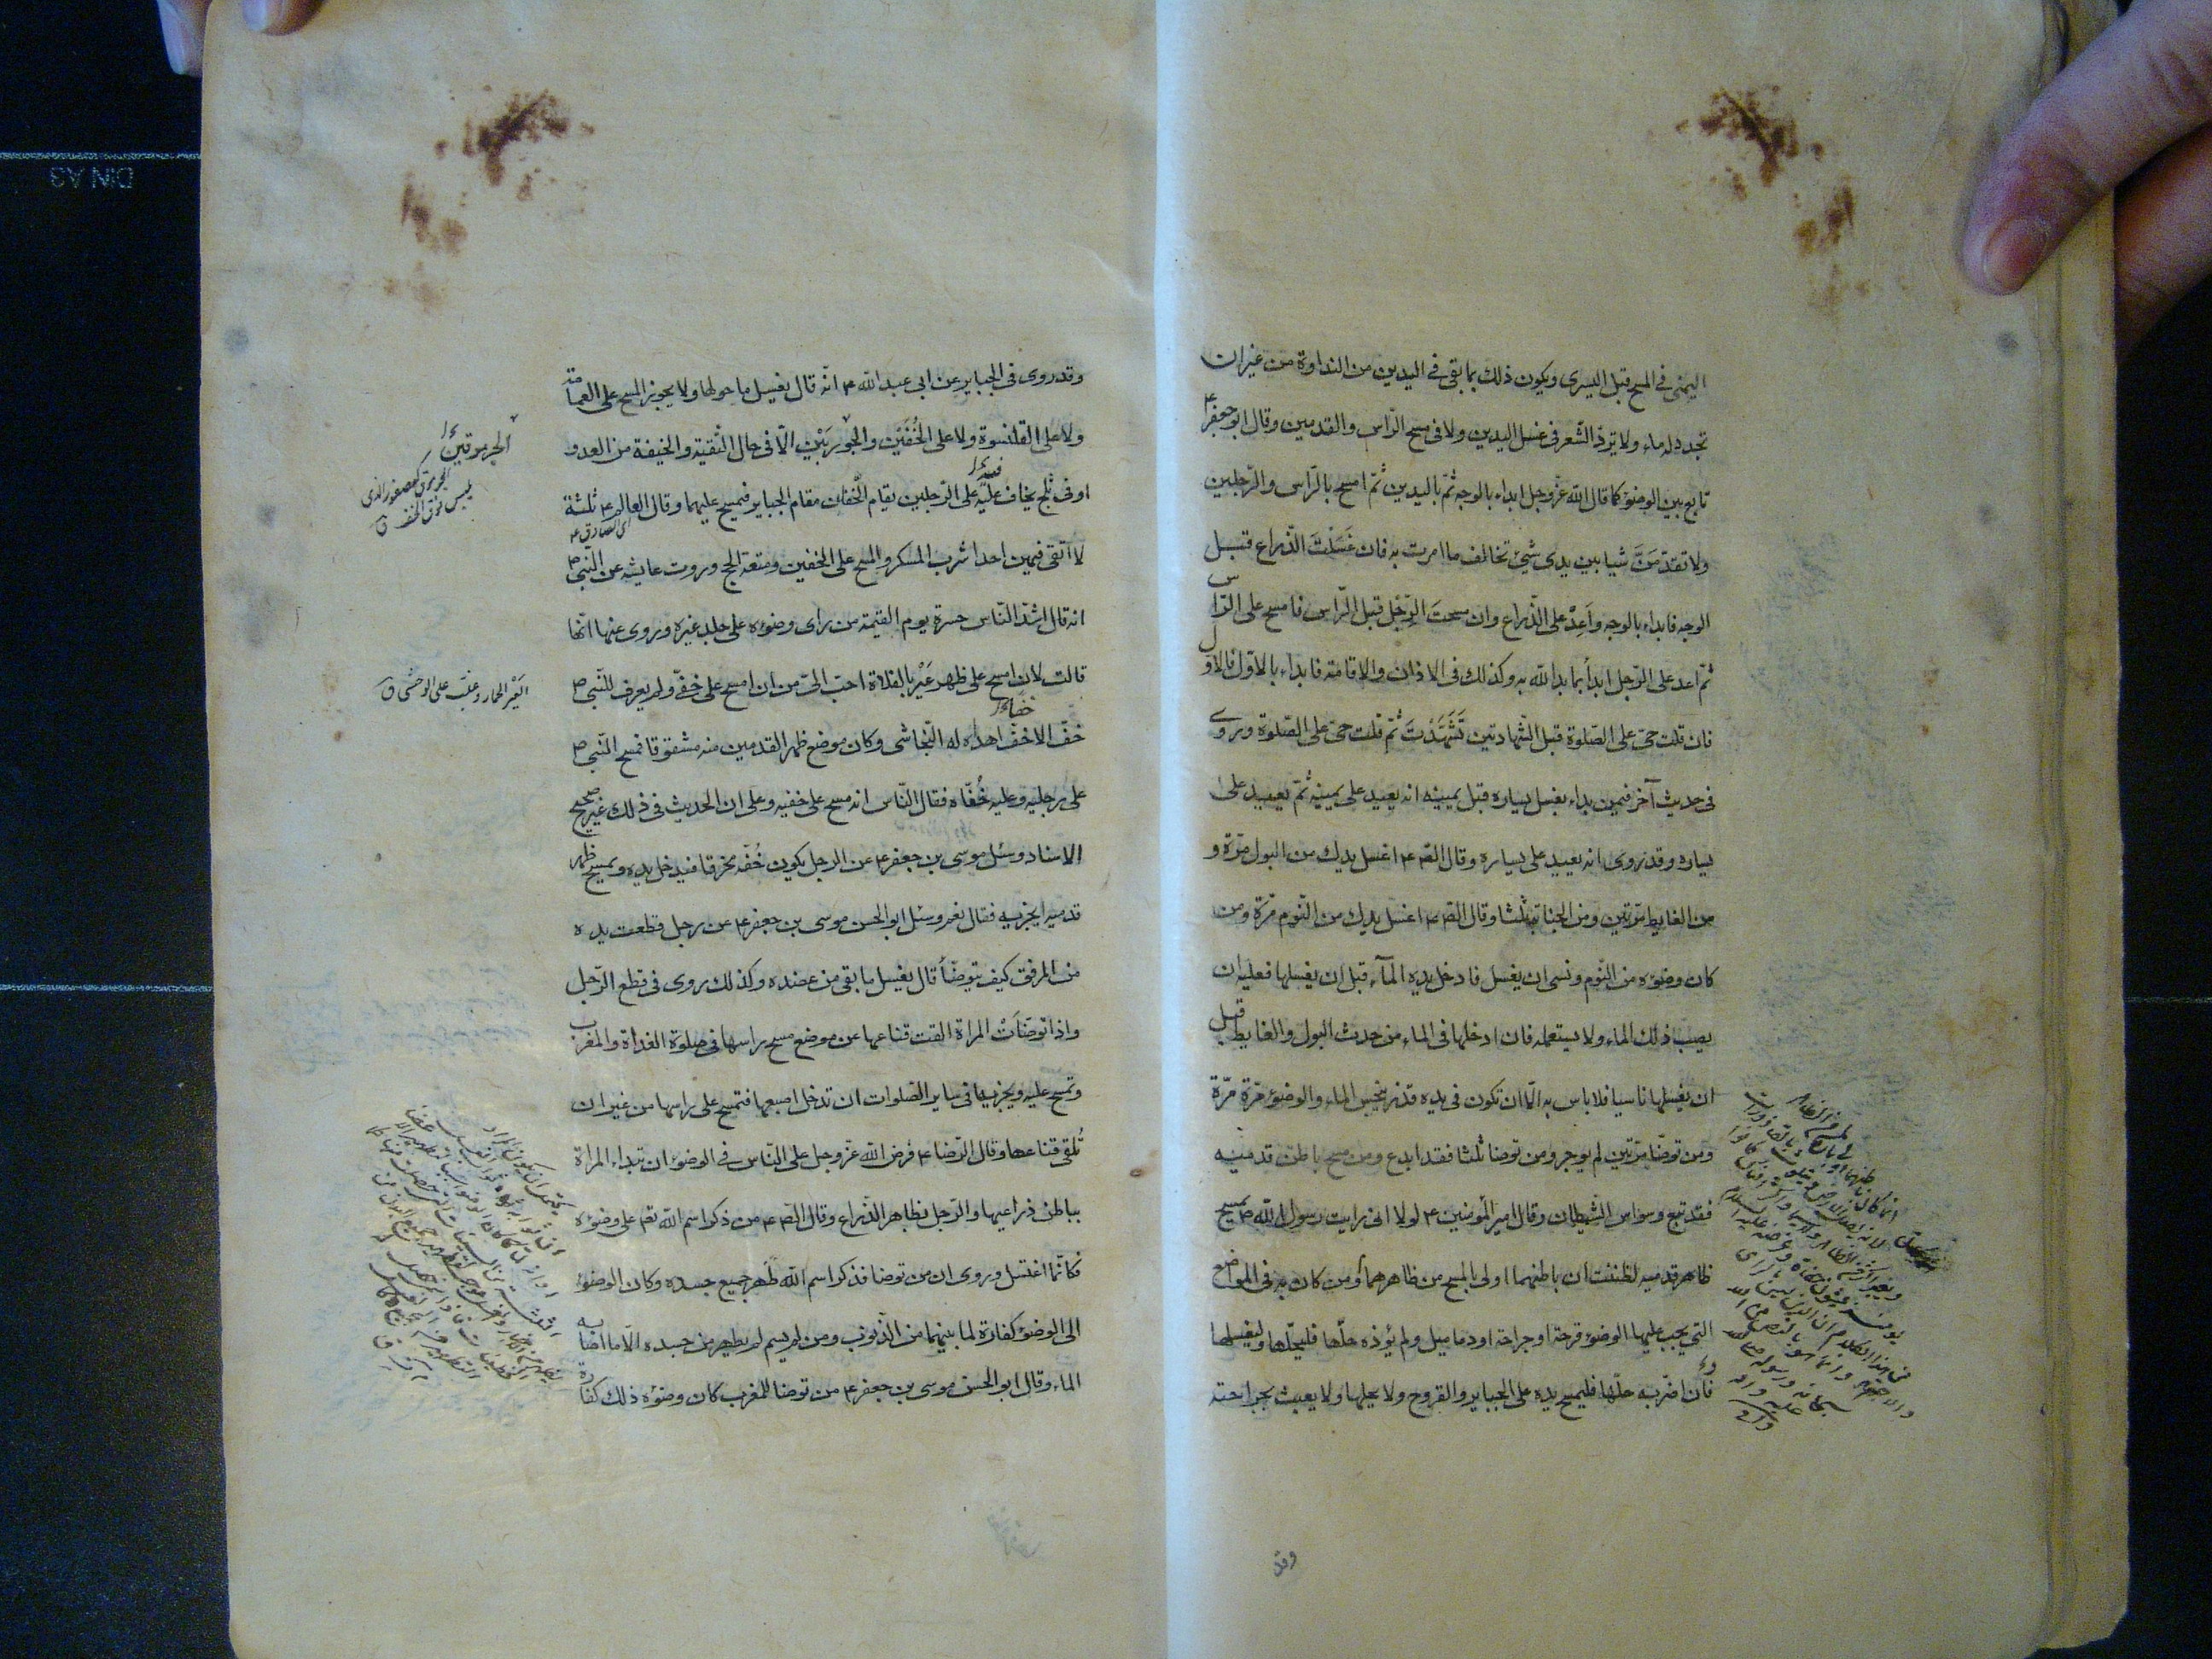 اليمنى فى المسح قبل اليسرى ويكون ذلك بما بقى فى اليدين من النداوة من غير ان
تجدد له ماء ولا تردّ الشّعر فى غسل اليدين ولا فى مسح الرّاس والقدمين وقال ابو جعفر ع
تابع بين الوضوء كما قال الله عزّ وجل ابداء بالوجه ثمّ باليدين ثمّ امسح بالرّاس والرّجلين
ولا تقدّمَنَّ شيا بين يدى شىء تخالف ما امرت به فان غَسَلْتَ الذّراع قبل
الوجه فابداء بالوجه وأَعِدْ على الذّراع وان مسحتَ الرِّجْل قبل الرّاس فامسح على الرّاس
ثمّ اعد على الرّجل ابدأ بما بدا لله به وكذلك فى الاذان والاقامة فابداء بالاوّل فالاوّل
فان قلت حىّ على الصّلوة قبل الشّهادتين تَشَهَّدْتَ ثمّ قلت حىّ على الصّلوة وروى
فى حديث آخر فيمن بداء بغسل يساره قبل يمينه انه يعيد على يمينه ثمّ يعيد على
يساره وقد روى انه يعيد على يساره وقال الص ع اغسل يدك من البول مرّة و
من الغايط مرّتين ومن الجنابة ثلثا وقال الص ع اغسل يدك من النّوم مرّة ومن
كان وضوءه من النّوم ونسى ان يغسل فادخل يده المآء قبل ان يغسلها فعليه ان
يصب ذلك الماء ولا يستعمله فان ادخلها فى الماء من حدث البول والغايط قبل
ان يغسلها ناسيا فلا باس به الّا ان تكون فى يده قذر ينجس الماء والوضوء مرّة مرّة
ومن توضّا مرّتين لم يوجر ومن توضا ثلثا فقد ابدع ومن مسح باطن قدميه
فقد تبع وسواس الشيطان وقال امير المؤمنين ع لولا انى رايت رسول الله ص يمسح
ظاهر قدميه لظننت ان باطنهما اولى بالمسح من ظاهرهما ومن كان به فى المواضع
التى يجب عليها الوضوء قرحة او جراحة او دماميل ولم يؤذه حلّها فليحلّها وليغسلها
فان اضرّ به حلّها فليمسح يده على الجباير والقروح ولا يحلها ولا يعبث بجراحته
وقد
وقد روى فى الجباير عن ابى عبد الله ع انّه قال يغسل ما حولها ولا يجوز المسح على العمامة
ولا على القلنسوة ولا على الخُفَّيْن والجَوْرَبَيْنِ الّا فى حال التّقية والخيفة من العدو
او فى ثلج يخاف فيه على الرّجلين يقام الخُفّان مقام الجباير فيمسح عليهما وقال العالم ع ثلثة
اى الصادق ع
لا اتّقى فيهن احدا شرب المسكر والمسح على الخفين ومتعة الحج وروت عايشه عن النّبى ص
انه قال اشدّ النّاس حسرة يوم القيمة من راى وضوءه على جلد غيره وروى عنها انّها
قالت لان امسح على ظهر عَيْرٍ بالفلاة احبّ الىّ من ان امسح على خفّى ولم يعرف للنّبى ص
خفّ الا خفّ اهداه له النّجاشى وكان موضع ظهر القدمين منه مشقوقا فمسح النّبى ص
على رجليه وعليه خُفّاه فقال النّاس انه مسح على خفيه وعلى ان الحديث فى ذلك غير صحيح
الاسناد وسئل موسى بن جعفر ع عن الرجل يكون خُفّه مخرقا فيدخل يده ويمسح ظهر
قدميه ايجزيه فقال نعم وسئل ابو الحسن موسى بن جعفر ع عن رجل قطعت يده
من المرفق كيف يتوضّأ قال يغسل ما بقى من عضده وكذلك روى فى قطع الرّجل
واذا توضّأَتْ المراة القت قناعها عن موضع مسح راسها فى صلوة الغداة والمغرب
وتمسح عليه ويجزيها فى ساير الصّلوات ان تدخل اصبعها فتمسح على راسها من غير ان
تُلقى قناعها وقال الرّضا ع فرض الله عزّ وجل على النّاس فى الوضوء ان تبداء المراة
بباطن ذراعيها والرّجل بظاهر الذّراع وقال الص ع من ذكر اسم الله تع على وضوئه
فكانّما اغتسل وروى ان من توضا فذكر اسم الله طهر جميع جسده وكان الوضوء
الى الوضوء كفارة لما بينهما من الذّنوب ومن لم يسم لم يطهر من جسده الّا ما اصابه
الماء وقال ابو الحسن موسى بن جعفر ع من توضا للمغرب كان وضوءه ذلك كفارة
الجرموقين
الجرموق كعصفور الذى
يلبس فوق الخف ق
العَيْر الحمار وغلب على الوحشى ق